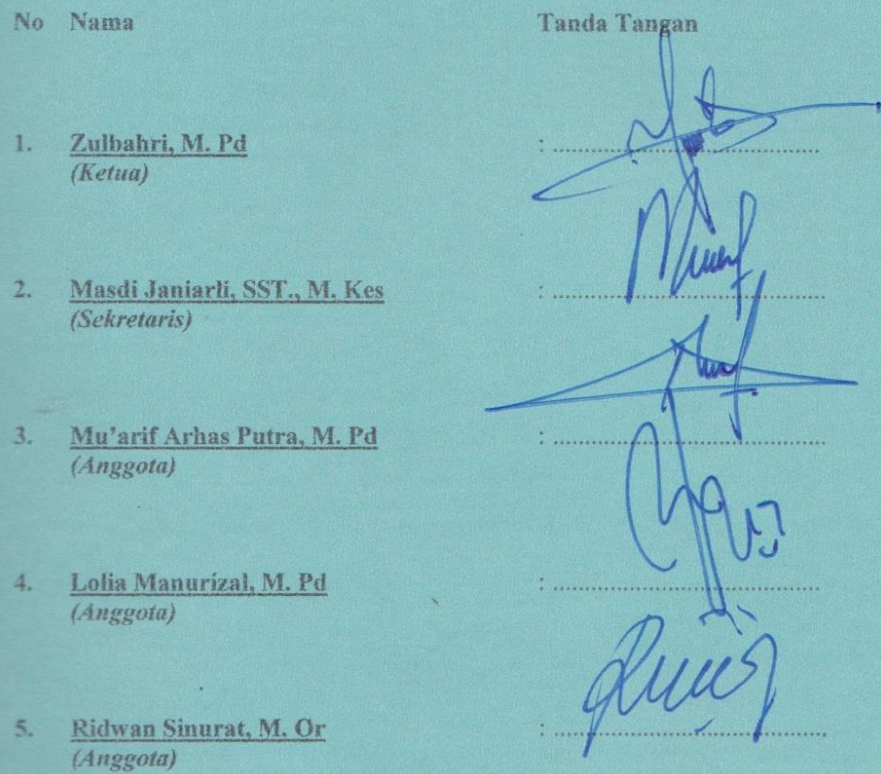 No Nama Tanda Tangan
1. Zulbahri, M. Pd : ..........
(Ketua)
2. Masdi Janiarli, SST., M. Kes : ..........
(Sekretaris)
3. Mu'arif Arhas Putra, M. Pd : ..........
(Anggota)
4. Lolia Manurizal, M. Pd : ..........
(Anggota)
5. Ridwan Sinurat, M. Or : ..........
(Anggota)